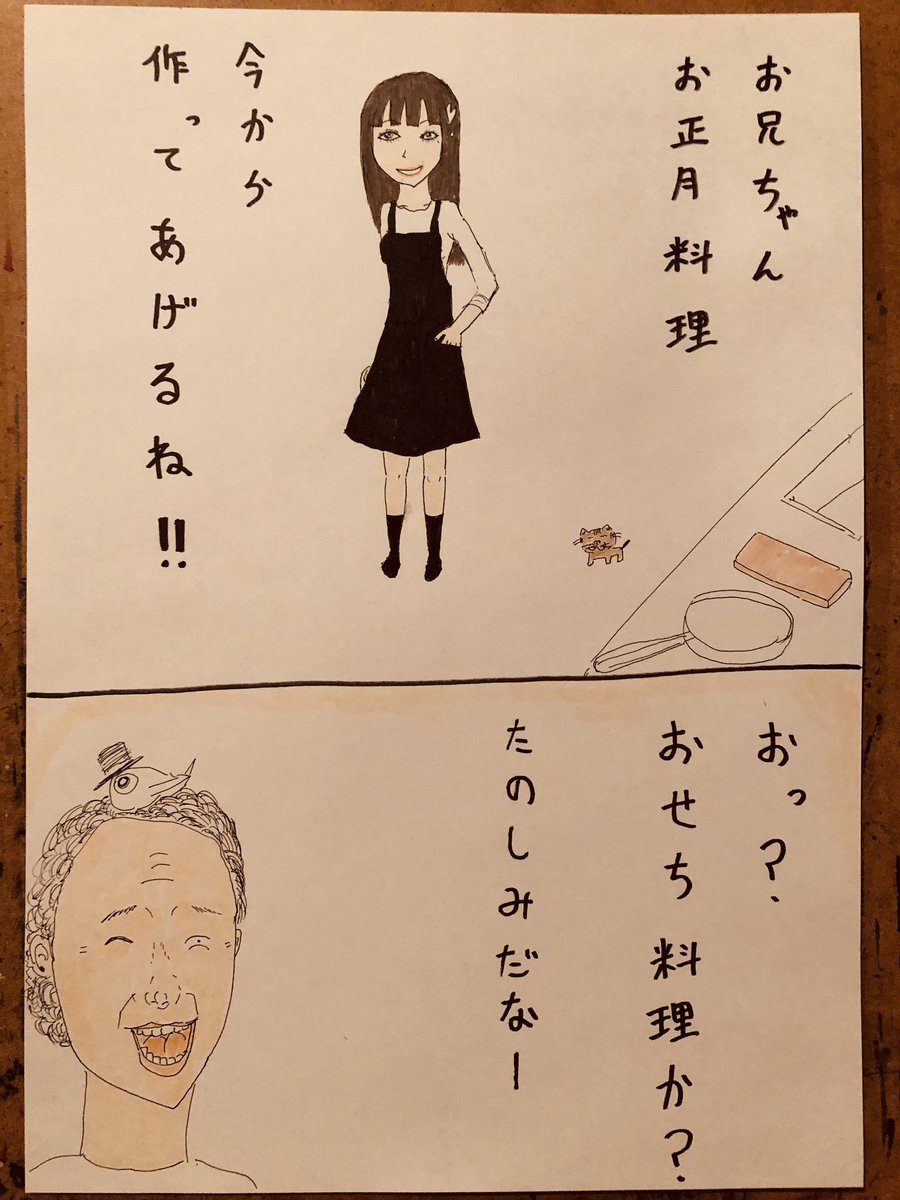 お兄ちゃん
お正月料理
今から
作ってあげるね!!
おっ?
おせち料理か?
たのしみだなー